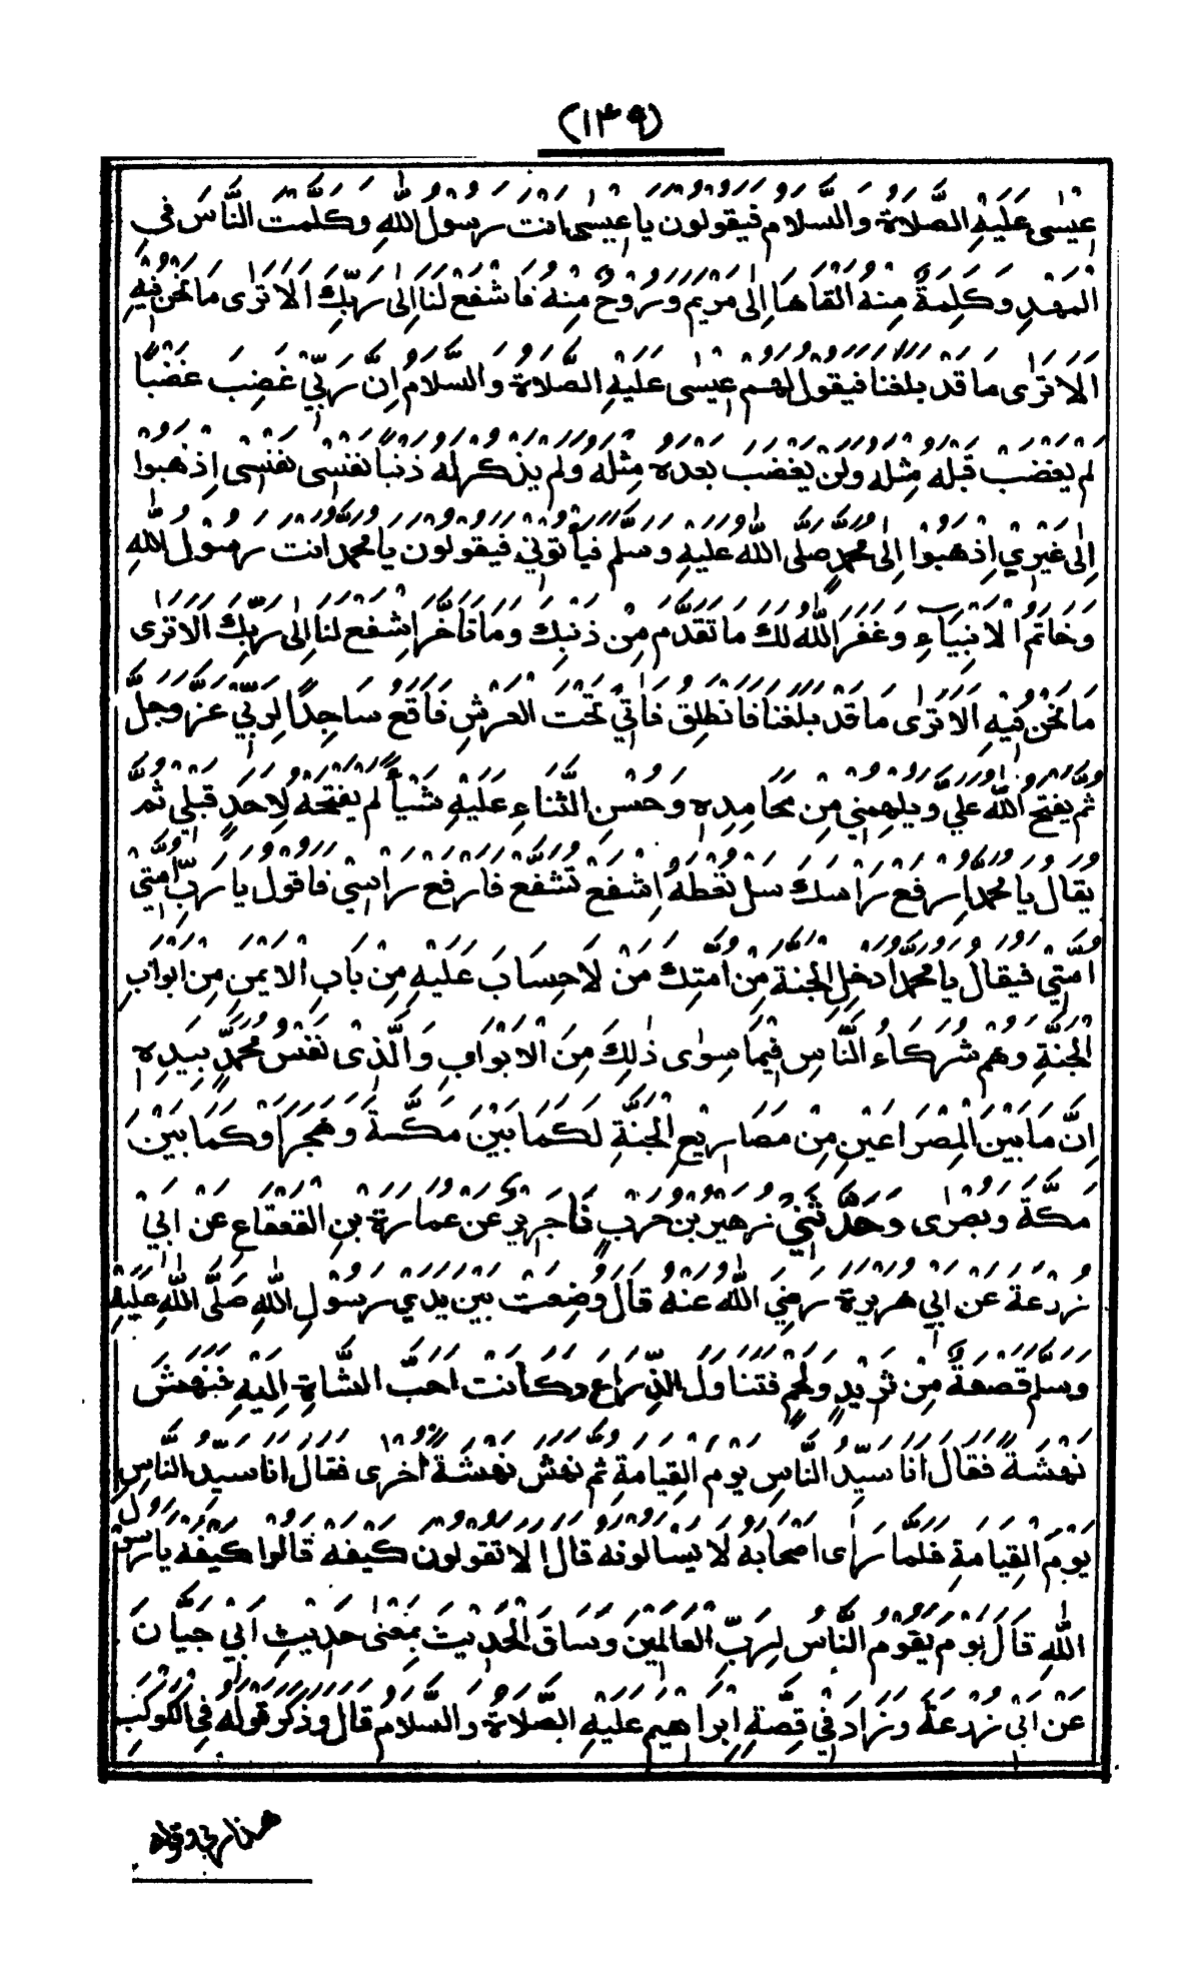 (١٣٩)
عِيْسٰى عَلَيْهِ الصَّلَاةُ وَالسَّلَامُ فَيَقُوْلُوْنَ يَا عِيْسٰى اَنْتَ رَسُوْلُ اللّٰهِ وَكَلَّمْتَ النَّاسَ فِي
الْمَهْدِ وَكَلِمَةٌ مِنْهُ اَلْقَاهَا اِلٰى مَرْيَمَ وَرُوْحٌ مِنْهُ فَاشْفَعْ لَنَا اِلٰى رَبِّكَ اَلَا تَرٰى مَا نَحْنُ فِيْهِ
اَلَا تَرٰى مَا قَدْ بَلَغَنَا فَيَقُوْلُ لَهُمْ عِيْسٰى عَلَيْهِ الصَّلَاةُ وَالسَّلَامُ اِنَّ رَبِّيْ غَضِبَ غَضَبًا
لَمْ يَغْضَبْ قَبْلَهُ مِثْلَهُ وَلَنْ يَغْضَبَ بَعْدَهُ مِثْلَهُ وَلَمْ يَذْكُرْ لَهُ ذَنْبًا نَفْسِىْ نَفْسِىْ اِذْهَبُوْا
اِلٰى غَيْرِيْ اِذْهَبُوْا اِلٰى مُحَمَّدٍ صَلَّى اللّٰهُ عَلَيْهِ وَسَلَّمَ فَيَأْتُوْنِيْ فَيَقُوْلُوْنَ يَا مُحَمَّدُ اَنْتَ رَسُوْلُ اللّٰهِ
وَخَاتَمُ الْاَنْبِيَاءِ وَغَفَرَ اللّٰهُ لَكَ مَا تَقَدَّمَ مِنْ ذَنْبِكَ وَمَا تَأَخَّرَ اِشْفَعْ لَنَا اِلٰى رَبِّكَ اَلَا تَرٰى
مَا نَحْنُ فِيْهِ اَلَا تَرٰى مَا قَدْ بَلَغَنَا فَانْطَلِقُ فَاٰتِيْ تَحْتَ الْعَرْشِ فَاَقَعُ سَاجِدًا لِرَبِّيْ عَزَّ وَجَلَّ
ثُمَّ يَفْتَحُ اللّٰهُ عَلَيَّ وَيُلْهِمُنِيْ مِنْ مَحَامِدِهِ وَحُسْنِ الثَّنَاءِ عَلَيْهِ شَيْأً لَمْ يَفْتَحْهُ لِاَحَدٍ قَبْلِيْ ثُمَّ
يُقَالُ يَا مُحَمَّدُ اِرْفَعْ رَأْسَكَ سَلْ تُعْطَهْ اِشْفَعْ تُشَفَّعْ فَارْفَعُ رَأْسِيْ فَاَقُوْلُ يَا رَبِّ اُمَّتِيْ
اُمَّتِيْ فَيُقَالُ يَا مُحَمَّدُ اَدْخِلِ الْجَنَّةَ مِنْ اُمَّتِكَ مَنْ لَا حِسَابَ عَلَيْهِ مِنْ بَابِ الْاَيْمَنِ مِنْ اَبْوَابِ
الْجَنَّةِ وَهُمْ شُرَكَاءُ النَّاسِ فِيْمَا سِوٰى ذٰلِكَ مِنَ الْاَبْوَابِ وَالَّذِىْ نَفْسُ مُحَمَّدٍ بِيَدِهِ
اِنَّ مَا بَيْنَ الْمِصْرَاعَيْنِ مِنْ مَصَارِيْعِ الْجَنَّةِ لَكَمَا بَيْنَ مَكَّةَ وَهَجَرَ اَوْ كَمَا بَيْنَ
مَكَّةَ وَبُصْرٰى وَحَدَّثَنِيْ زُهَيْرُ بْنُ حَرْبٍ نَا جَرِيْرٌ عَنْ عُمَارَةَ بْنِ الْقَعْقَاعِ عَنْ اَبِيْ
زُرْعَةَ عَنْ اَبِيْ هُرَيْرَةَ رَضِيَ اللّٰهُ عَنْهُ قَالَ وُضِعَتْ بَيْنَ يَدَيْ رَسُوْلِ اللّٰهِ صَلَّى اللّٰهُ عَلَيْهِ
وَسَلَّمَ قَصْعَةٌ مِنْ ثَرِيْدٍ وَلَحْمٍ فَتَنَاوَلَ الذِّرَاعَ وَكَانَتْ اَحَبَّ الشَّاةِ اِلَيْهِ فَنَهَشَ
نَهْشَةً فَقَالَ اَنَا سَيِّدُ النَّاسِ يَوْمَ الْقِيَامَةِ ثُمَّ نَهَشَ نَهْشَةً اُخْرٰى فَقَالَ اَنَا سَيِّدُ النَّاسِ
يَوْمَ الْقِيَامَةِ فَلَمَّا رَاٰى اَصْحَابَهُ لَا يَسْاَلُوْنَهُ قَالَ اَلَا تَقُوْلُوْنَ كَيْفَهْ قَالُوْا كَيْفَهْ يَا رَسُوْلَ
اللّٰهِ قَالَ يَوْمَ يَقُوْمُ النَّاسُ لِرَبِّ الْعَالَمِيْنَ وَسَاقَ الْحَدِيْثَ بِمَعْنٰى حَدِيْثِ اَبِيْ حَيَّانَ
عَنْ اَبِيْ زُرْعَةَ وَزَادَ فِيْ قِصَّةِ اِبْرَاهِيْمَ عَلَيْهِ الصَّلَاةُ وَالسَّلَامُ قَالَ وَذَكَرَ قَوْلَهُ فِي الْكَوْكَبِ
هذا ربي وقوله